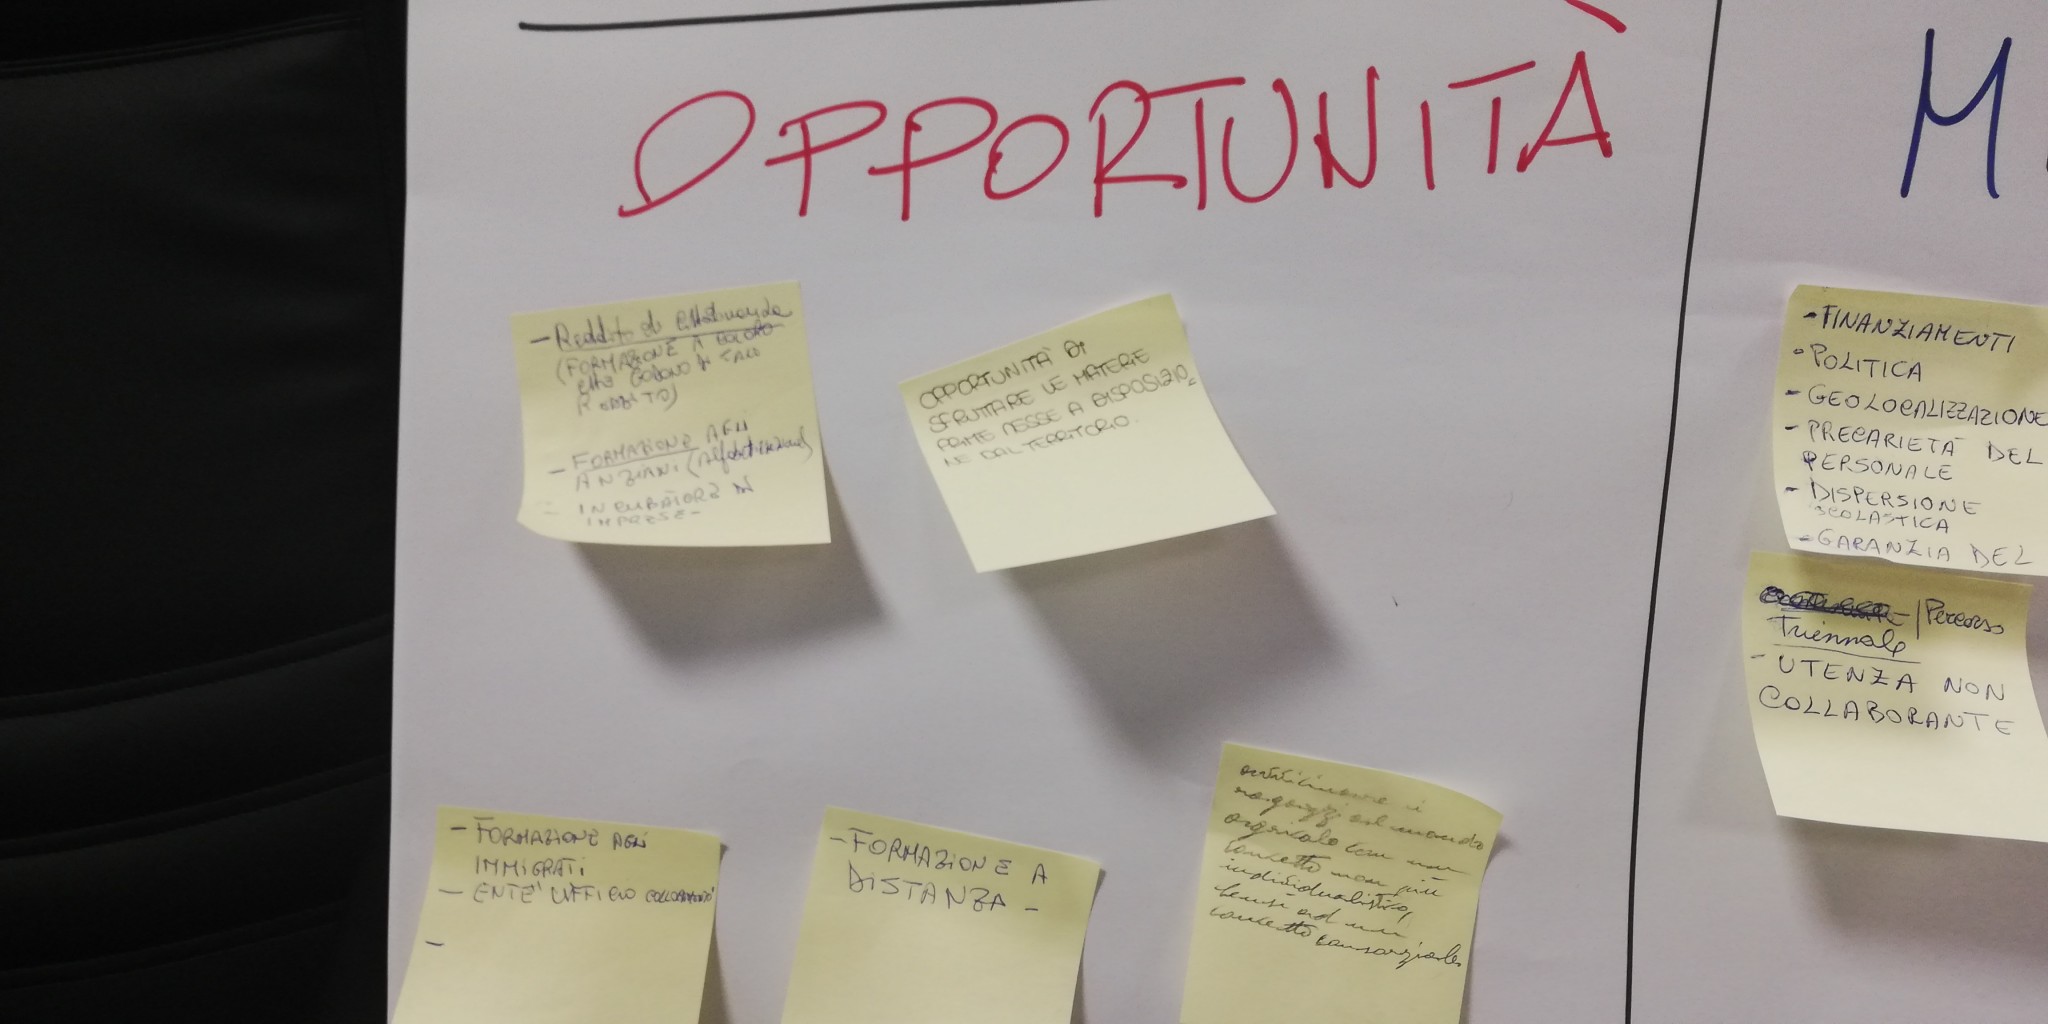 OPPORTUNITÀ
M
- Reddito di cittadinanza
(FORMAZIONE A COLORO
CHE GODONO DI TALE
REDDITO)
- FORMAZIONE AGLI
ANZIANI (Alfabetizzazione)
- INCUBATORE DI
IMPRESE -
OPPORTUNITÀ DI
SFRUTTARE LE MATERIE
PRIME MESSE A DISPOSIZIO
NE DAL TERRITORIO.
- FINANZIAMENTI
- POLITICA
- GEOLOCALIZZAZIONE
- PRECARIETÀ DEL
PERSONALE
- DISPERSIONE
SCOLASTICA
- GARANZIA DEL
| Percorso
Triennale
- UTENZA NON
COLLABORANTE
- FORMAZIONE AGLI
IMMIGRATI
- ENTE UFFICIO
-
- FORMAZIONE A
DISTANZA -
avvicinare i
ragazzi al mondo
agricolo con un
concetto non più
individualistico,
bensì ad un
concetto consorziale